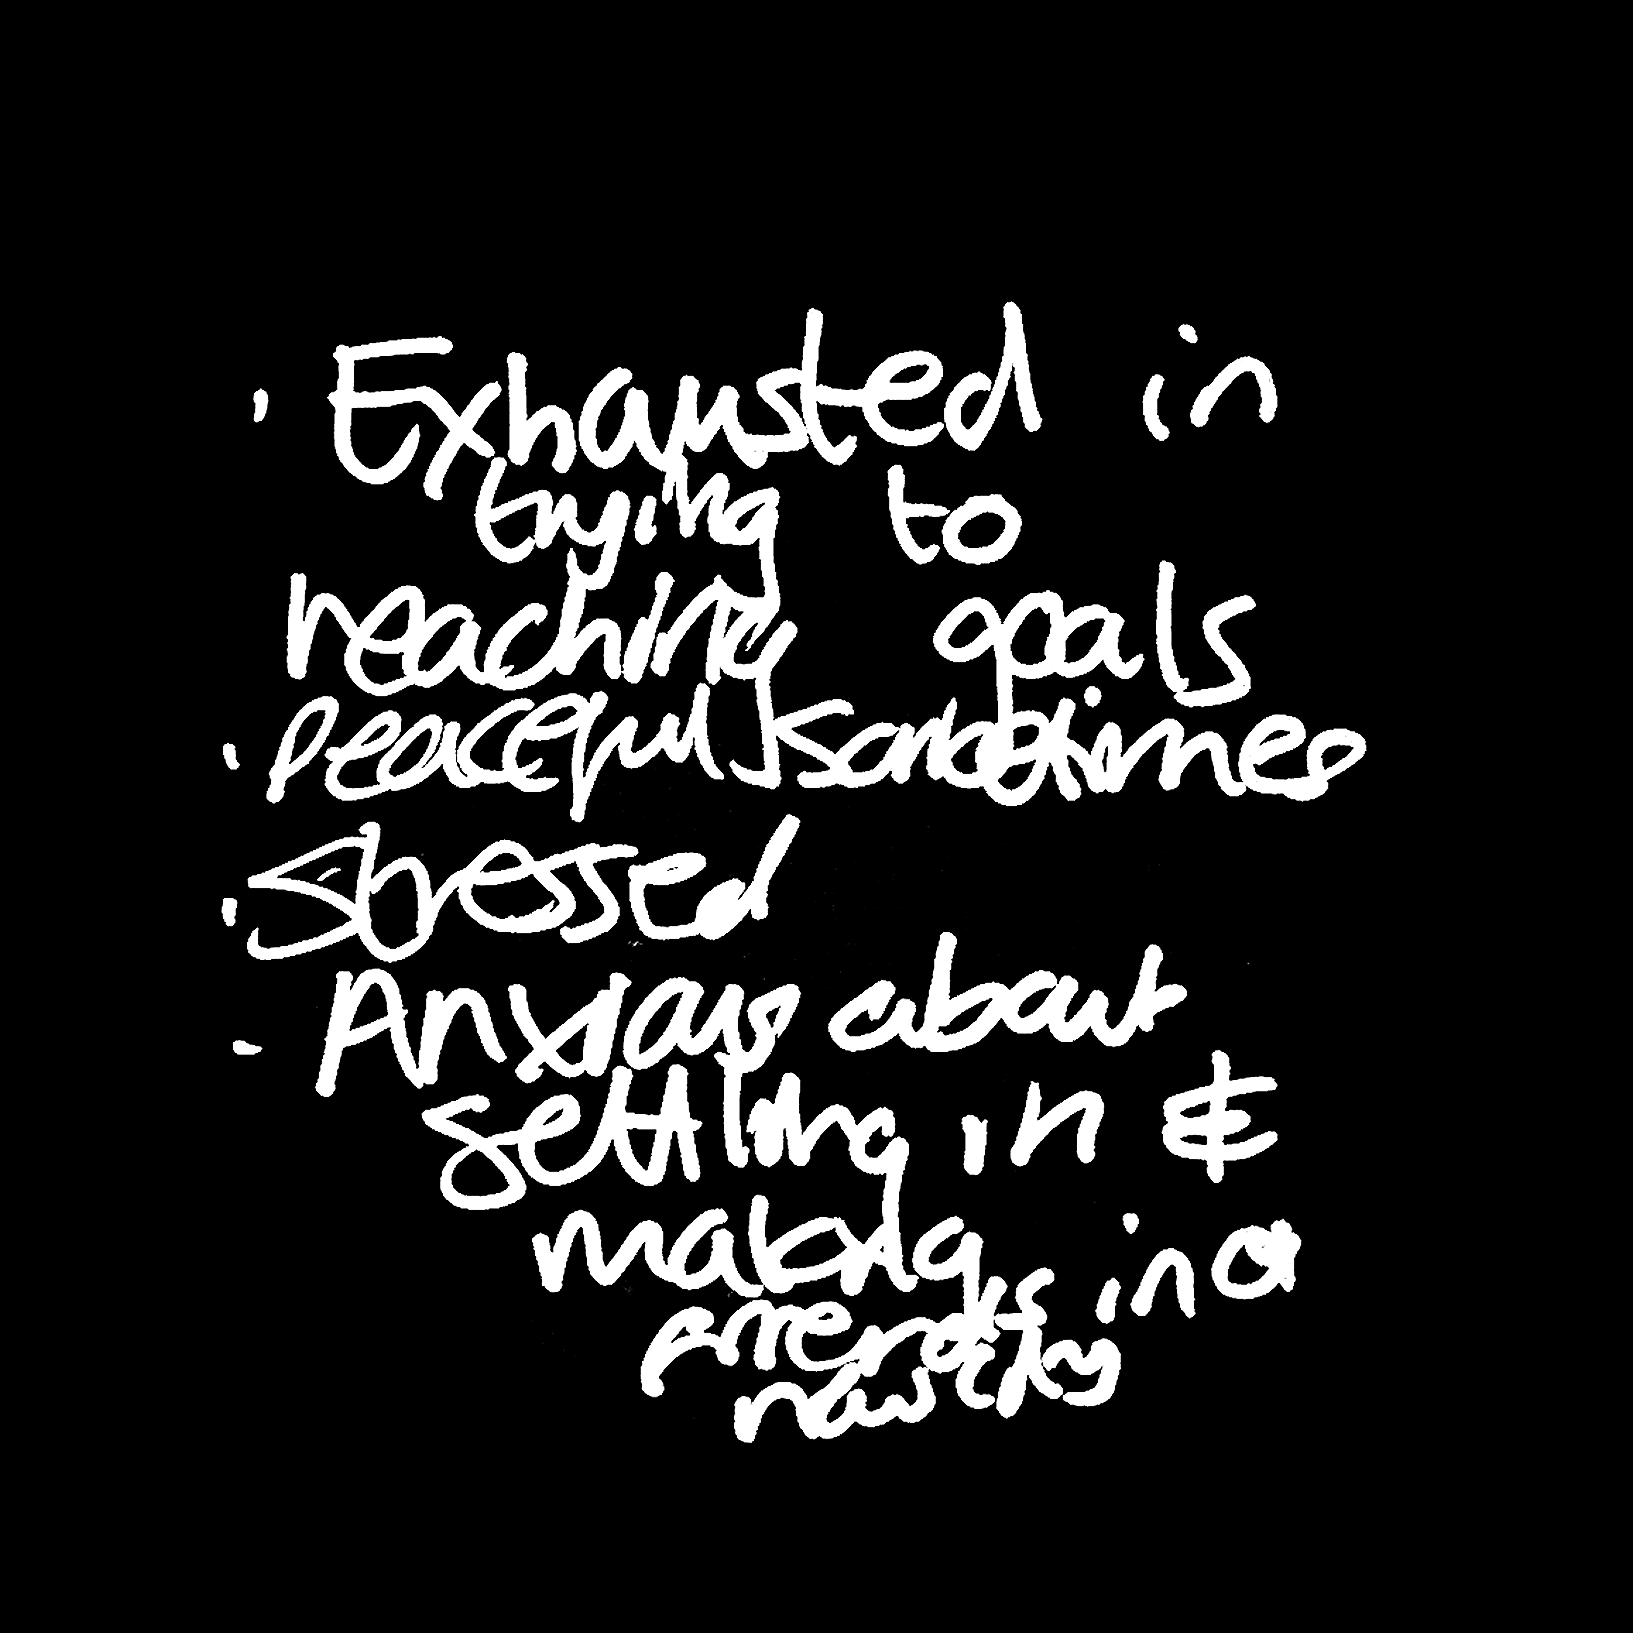 · Exhausted in
trying to
reaching goals
· Peaceful sometimes
· Stressed
- Anxious about
settling in &
making
friends in a
new city